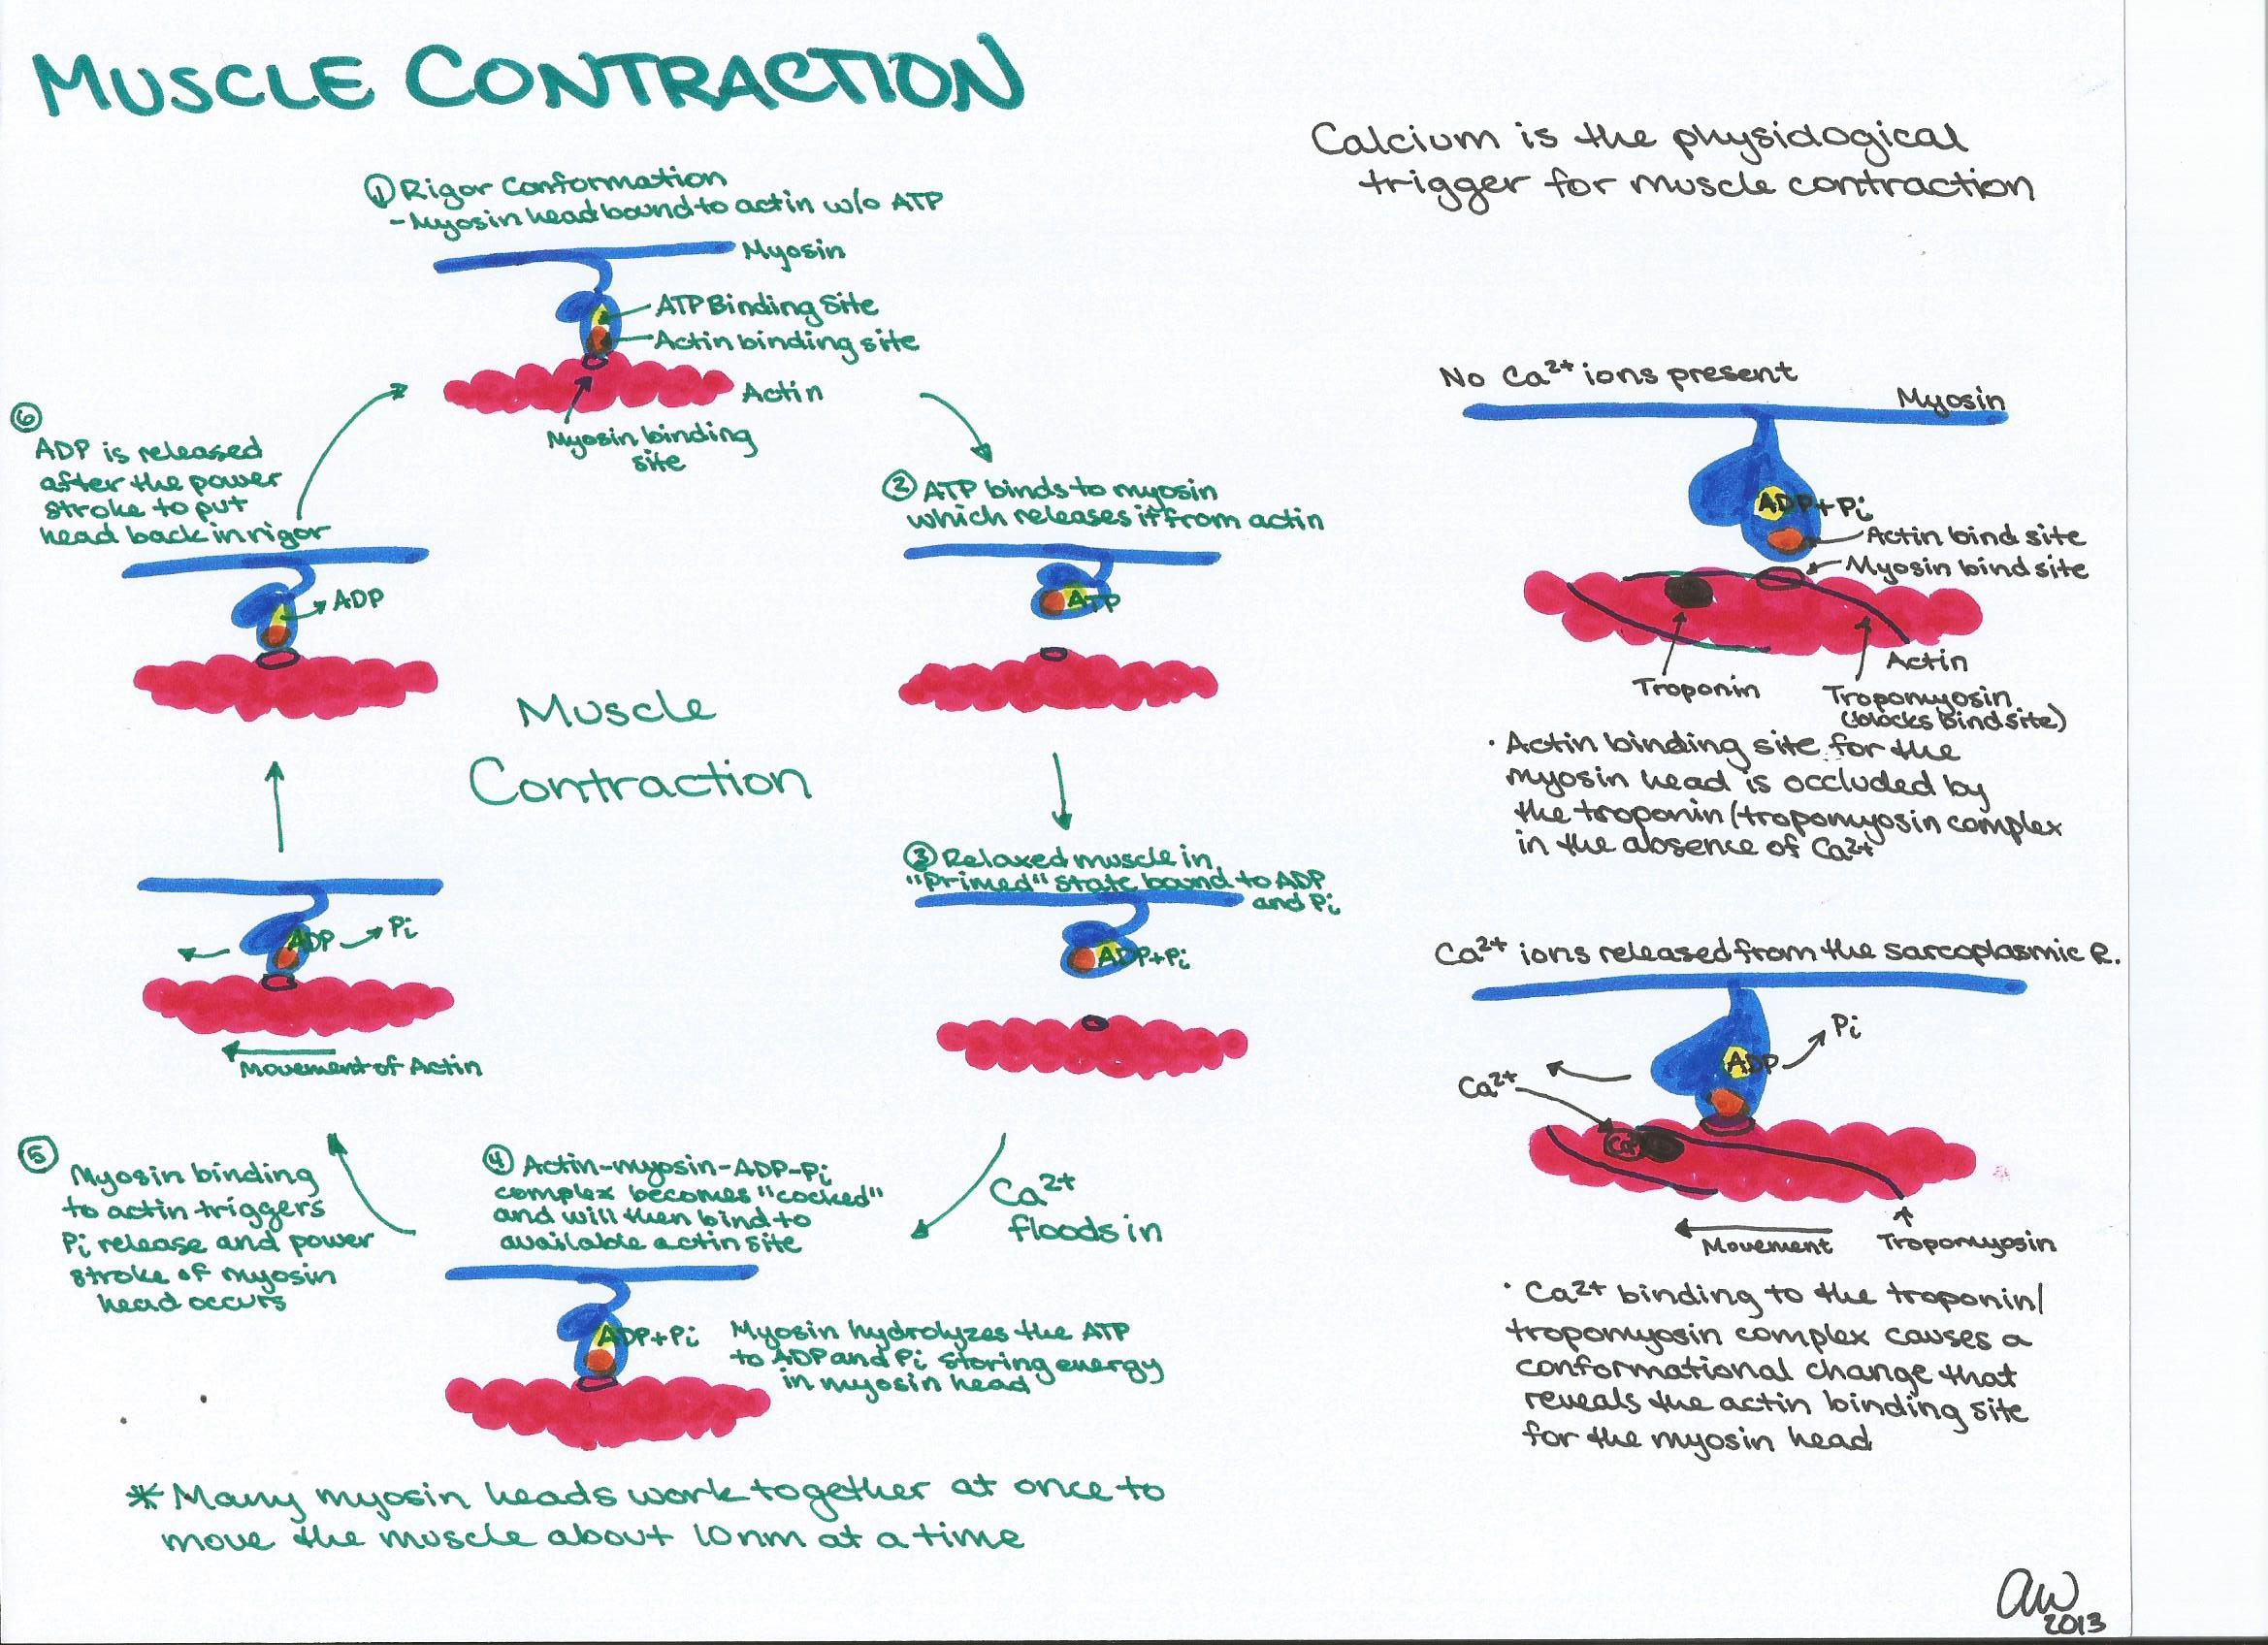 MUSCLE CONTRACTION
① Rigor Conformation
- Myosin head bound to actin w/o ATP
Myosin
ATP Binding Site
Actin binding site
Actin
Myosin binding
site
② ATP binds to myosin
which releases it from actin
ATP
③ Relaxed muscle in
"Primed" state bound to ADP
and Pi
ADP+Pi
Ca2+
floods in
④ Actin-myosin-ADP-Pi
complex becomes "cocked"
and will then bind to
available actin site
ADP+Pi
Myosin hydrolyzes the ATP
to ADP and Pi storing energy
in myosin head
⑤
Myosin binding
to actin triggers
Pi release and power
stroke of myosin
head occurs
ADP
Pi
Movement of Actin
⑥
ADP is released
after the power
stroke to put
head back in rigor
ADP
Muscle
Contraction
* Many myosin heads work together at once to
move the muscle about 10nm at a time
Calcium is the physidogical
trigger for muscle contraction
No Ca2+ ions present
Myosin
ADP+Pi
Actin bind site
Myosin bind site
Actin
Troponin
Tropomyosin
(blocks bind site)
· Actin binding site for the
myosin head is occluded by
the troponin/tropomyosin complex
in the absence of Ca2+
Ca2+ ions released from the sarcoplasmic R.
Pi
ADP
Ca2+
Ca
Movement
Tropomyosin
· Ca2+ binding to the troponin/
tropomyosin complex causes a
conformational change that
reveals the actin binding site
for the myosin head
aw
2013